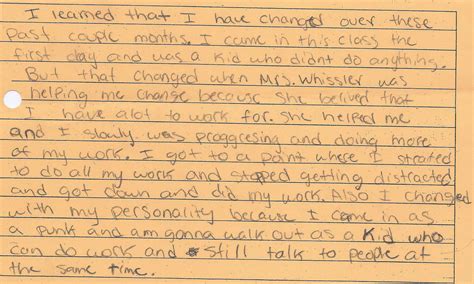 I learned that I have changed over these
past couple months. I came in this class the
first day and was a kid who didnt do anything.
But that changed when Mrs. Whissler was
helping me change because she belived that
I have alot to work for. She helped me
and I slowly was proggresing and doing more
of my work. I got to a point where I strated
to do all my work and stoped getting distracted
and got down and did my work. Also I changed
with my personality because I came in as
a punk and am gonna walk out as a kid who
can do work and still talk to people at
the same time.